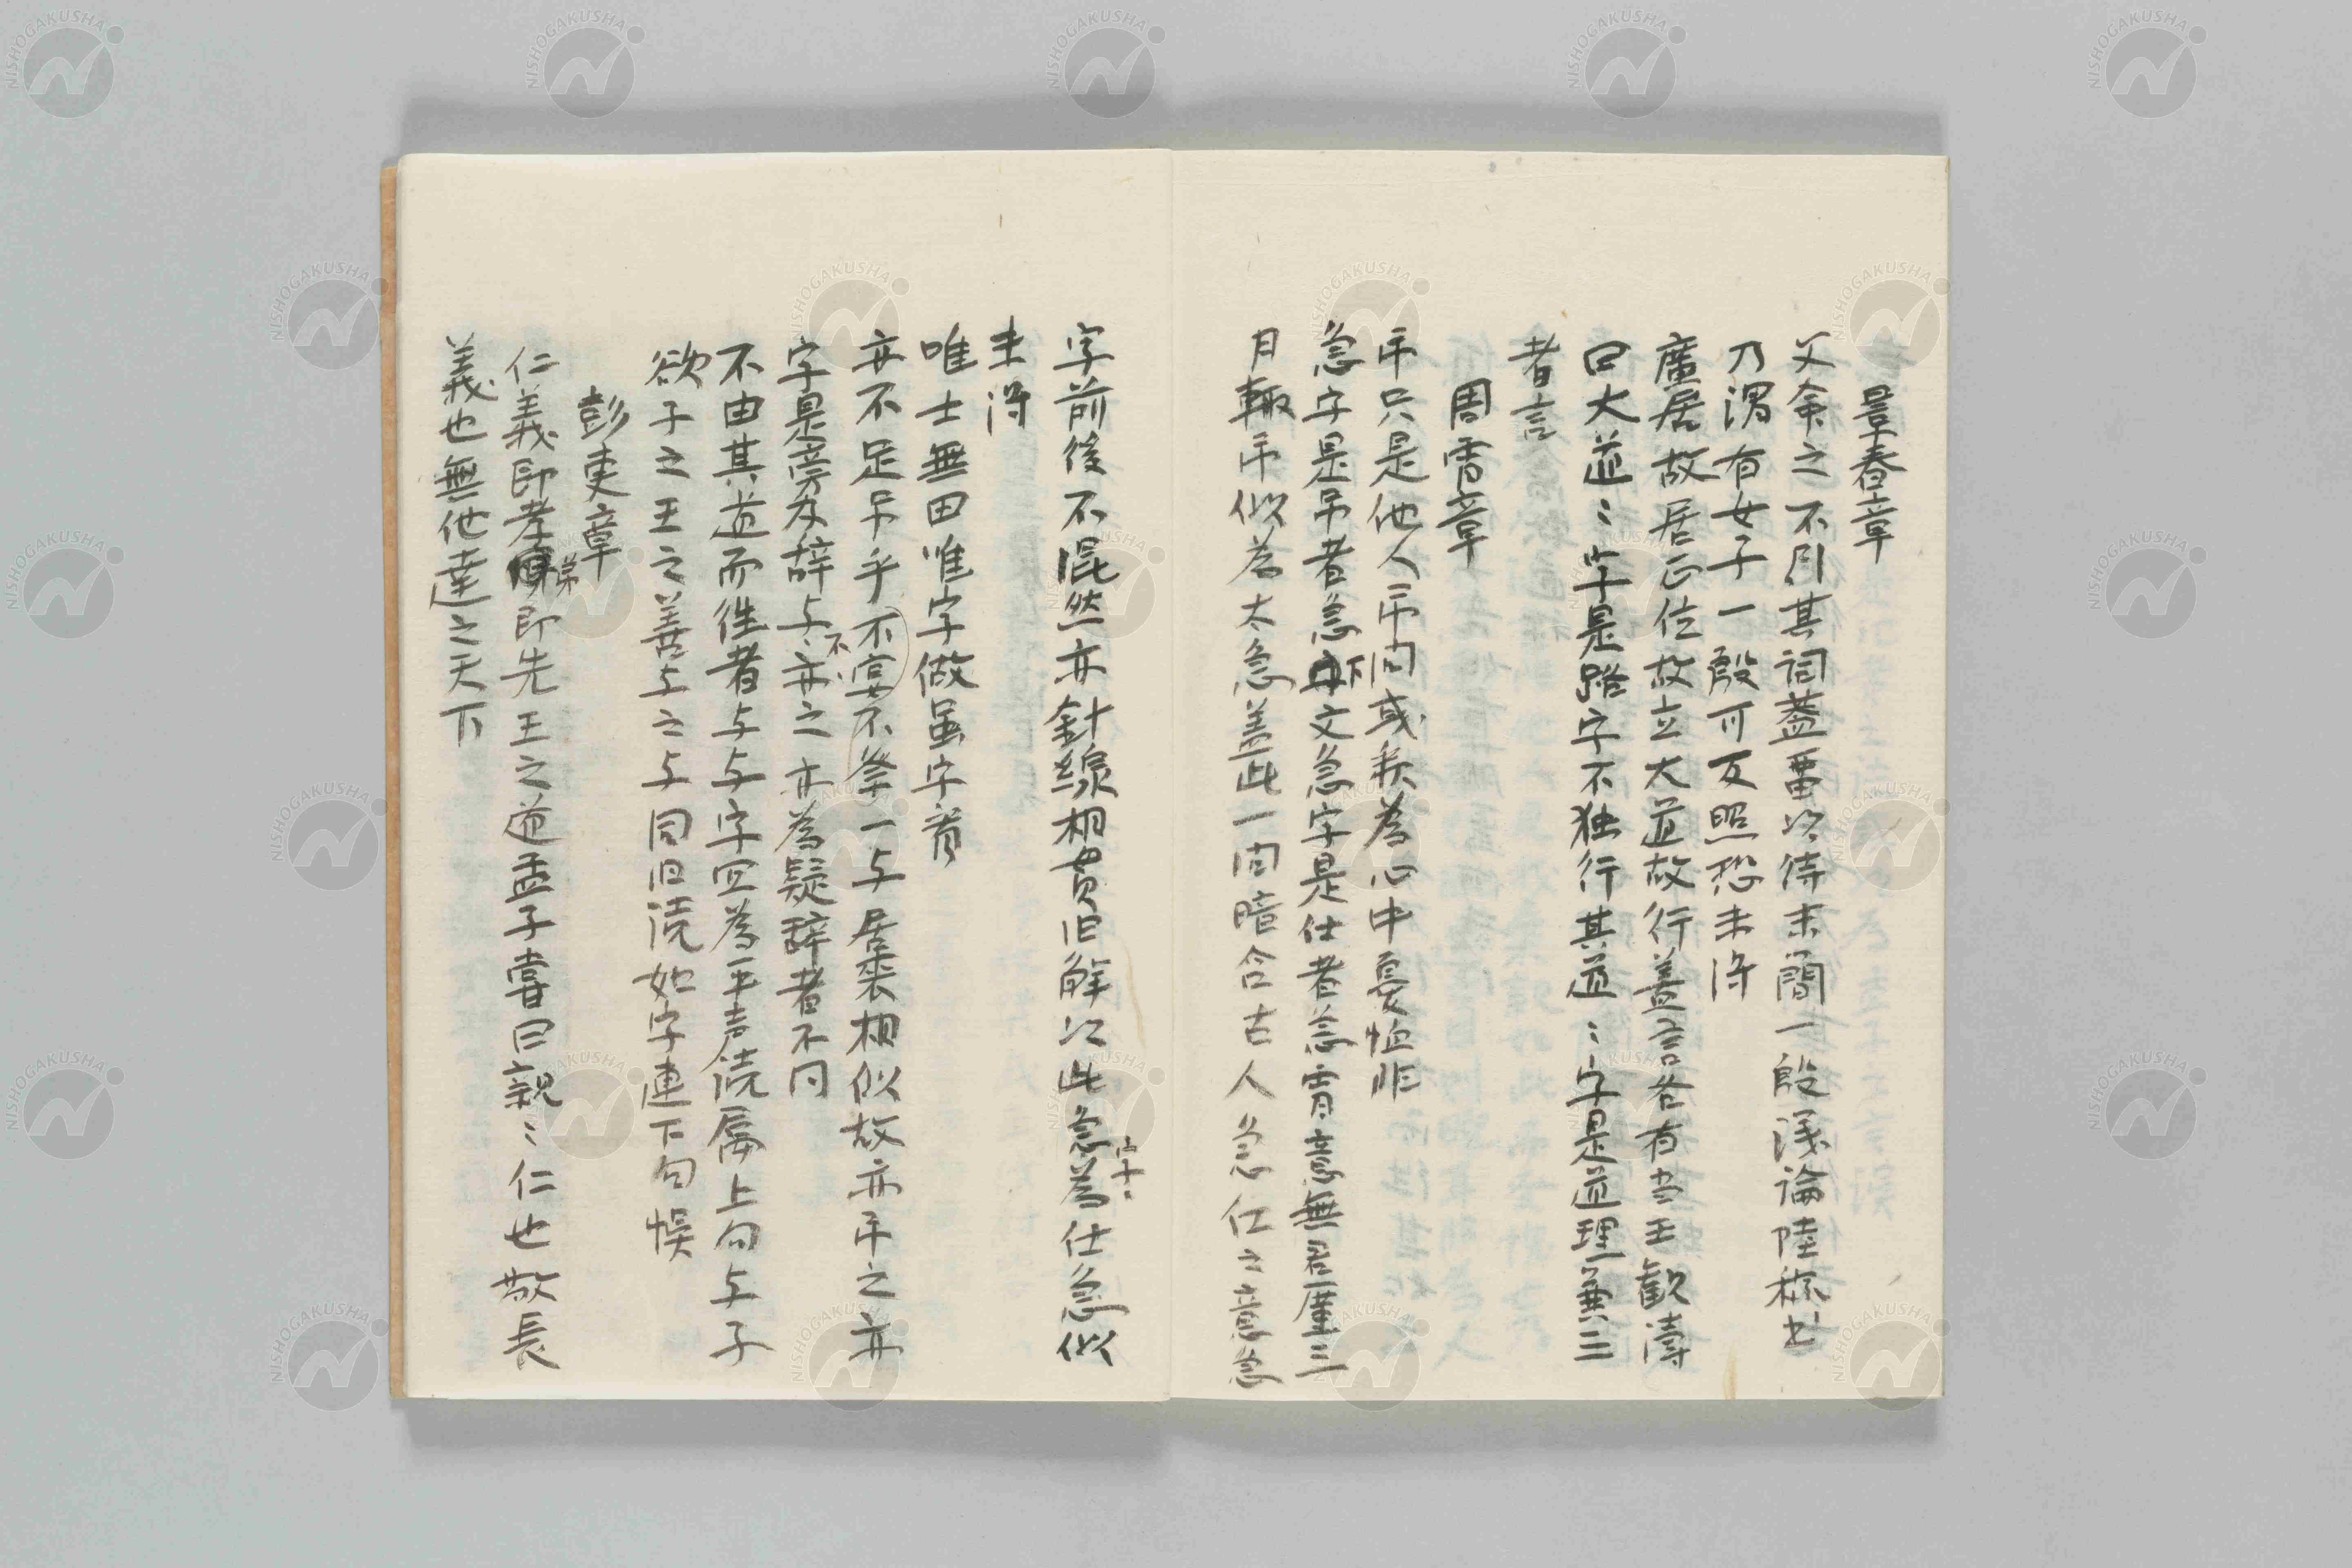 景春章
父命之不引其詞蓋畱以待末簡一段議論陸稼書
乃謂有女子一段可反照恐未得
廣居故居正位故立大道故行蓋言各有当王観濤
曰大道〻字是路字不独行其道〻字是道理兼三
者言
周霄章
弔只是他人弔問或兼為心中憂恤非
急字是弔者急下文急字是仕者急霄意無君廑三
月輙弔似為太急蓋此一問暗合古人急仕之意急
字前後不混然亦針線相貫旧解以此急字為仕急似
未得
唯士無田唯字做虽字看
亦不足弔乎不宴不祭一与居喪相似故亦弔之亦
字是旁及辞与不亦之亦為疑辞者不同
不由其道而徃者与与字宜為平声読属上句与子
欲子之王之善与之与同旧読如字連下句悞
彭更章
仁義即孝弟即先王之道孟子嘗曰親〻仁也敬長
義也無他達之天下
NISHOGAKUSHA